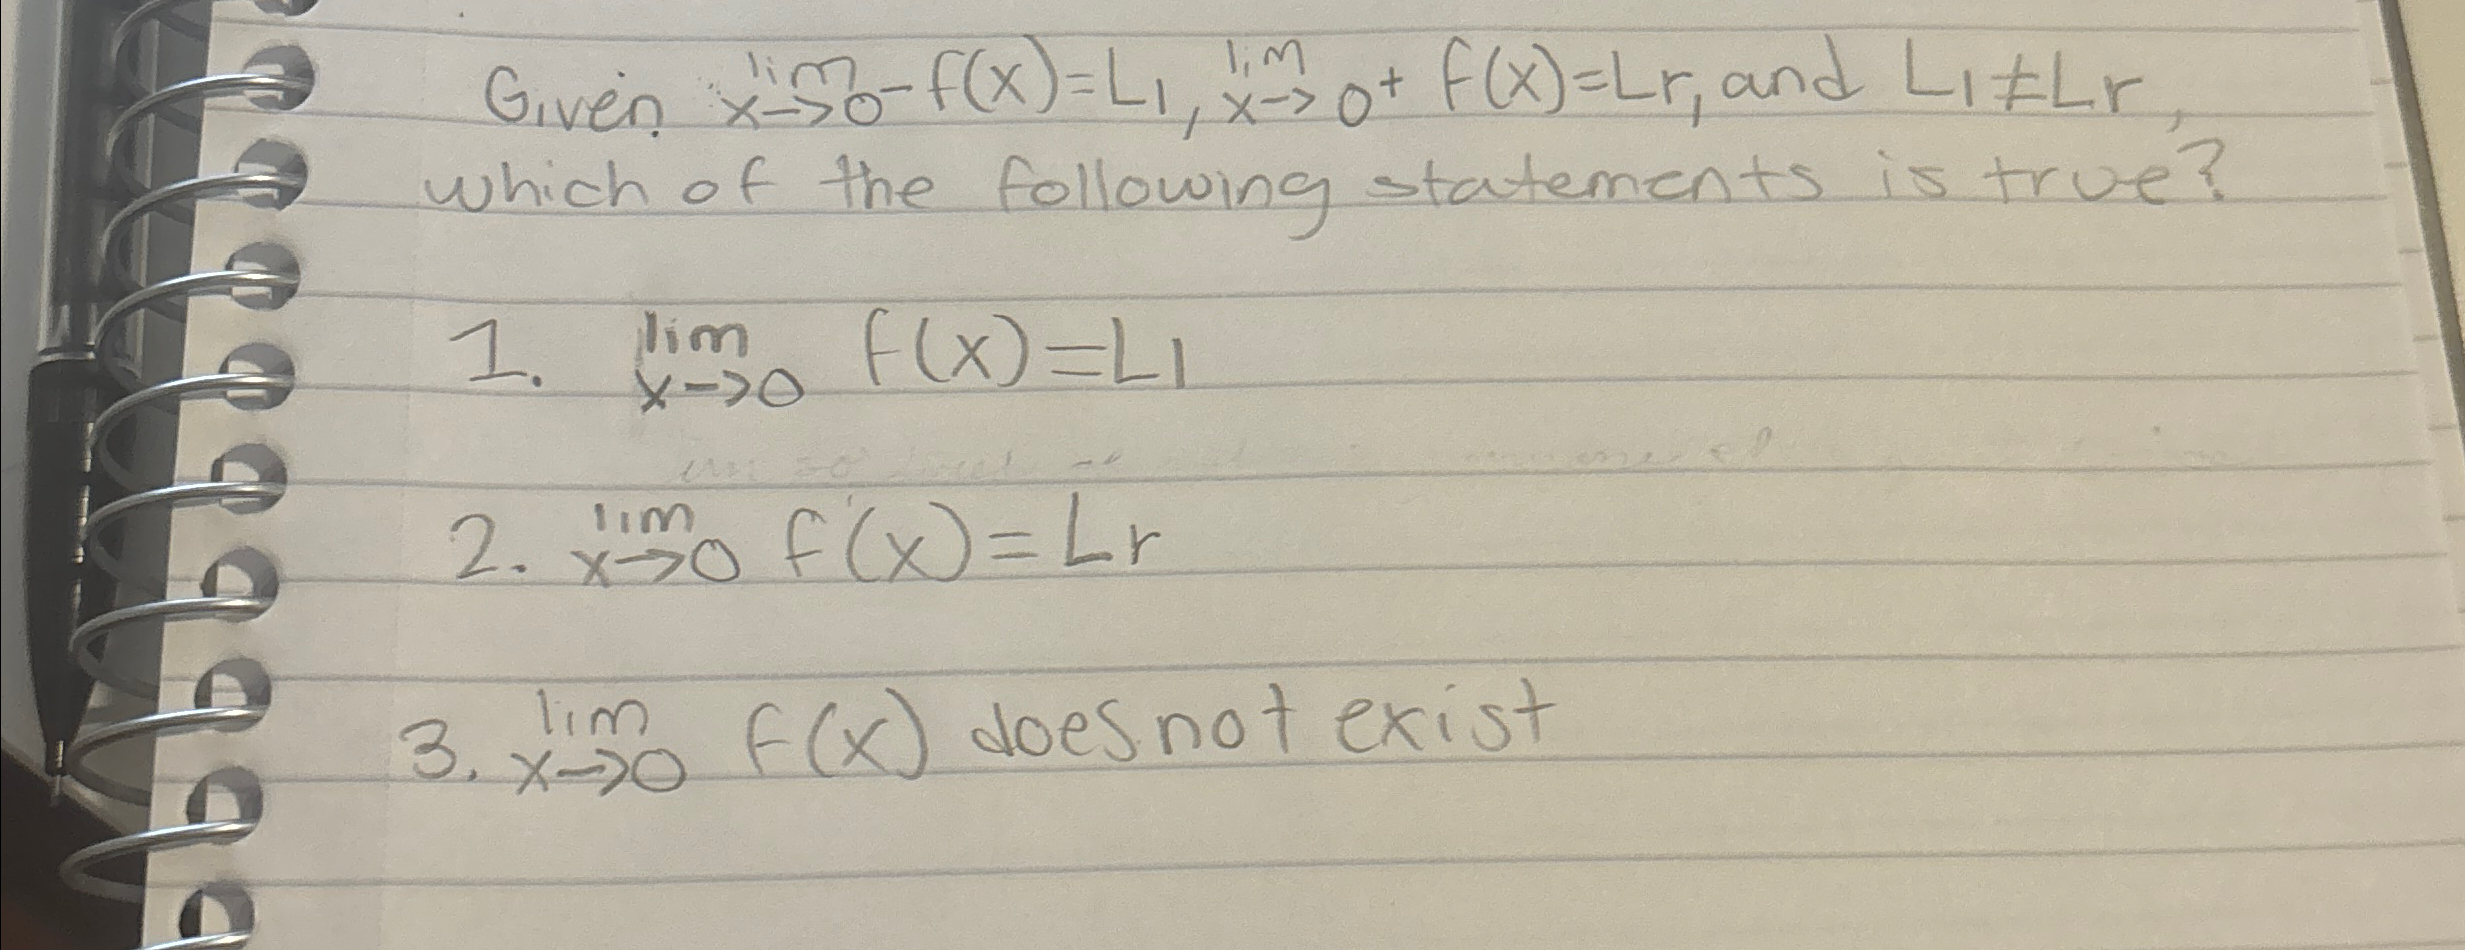 Given lim x->0- f(x)=L1, lim x->0+ f(x)=Lr, and L1≠Lr,
which of the following statements is true?
1. lim x->0 f(x)=L1
2. lim x->0 f(x)=Lr
3. lim x->0 f(x) does not exist